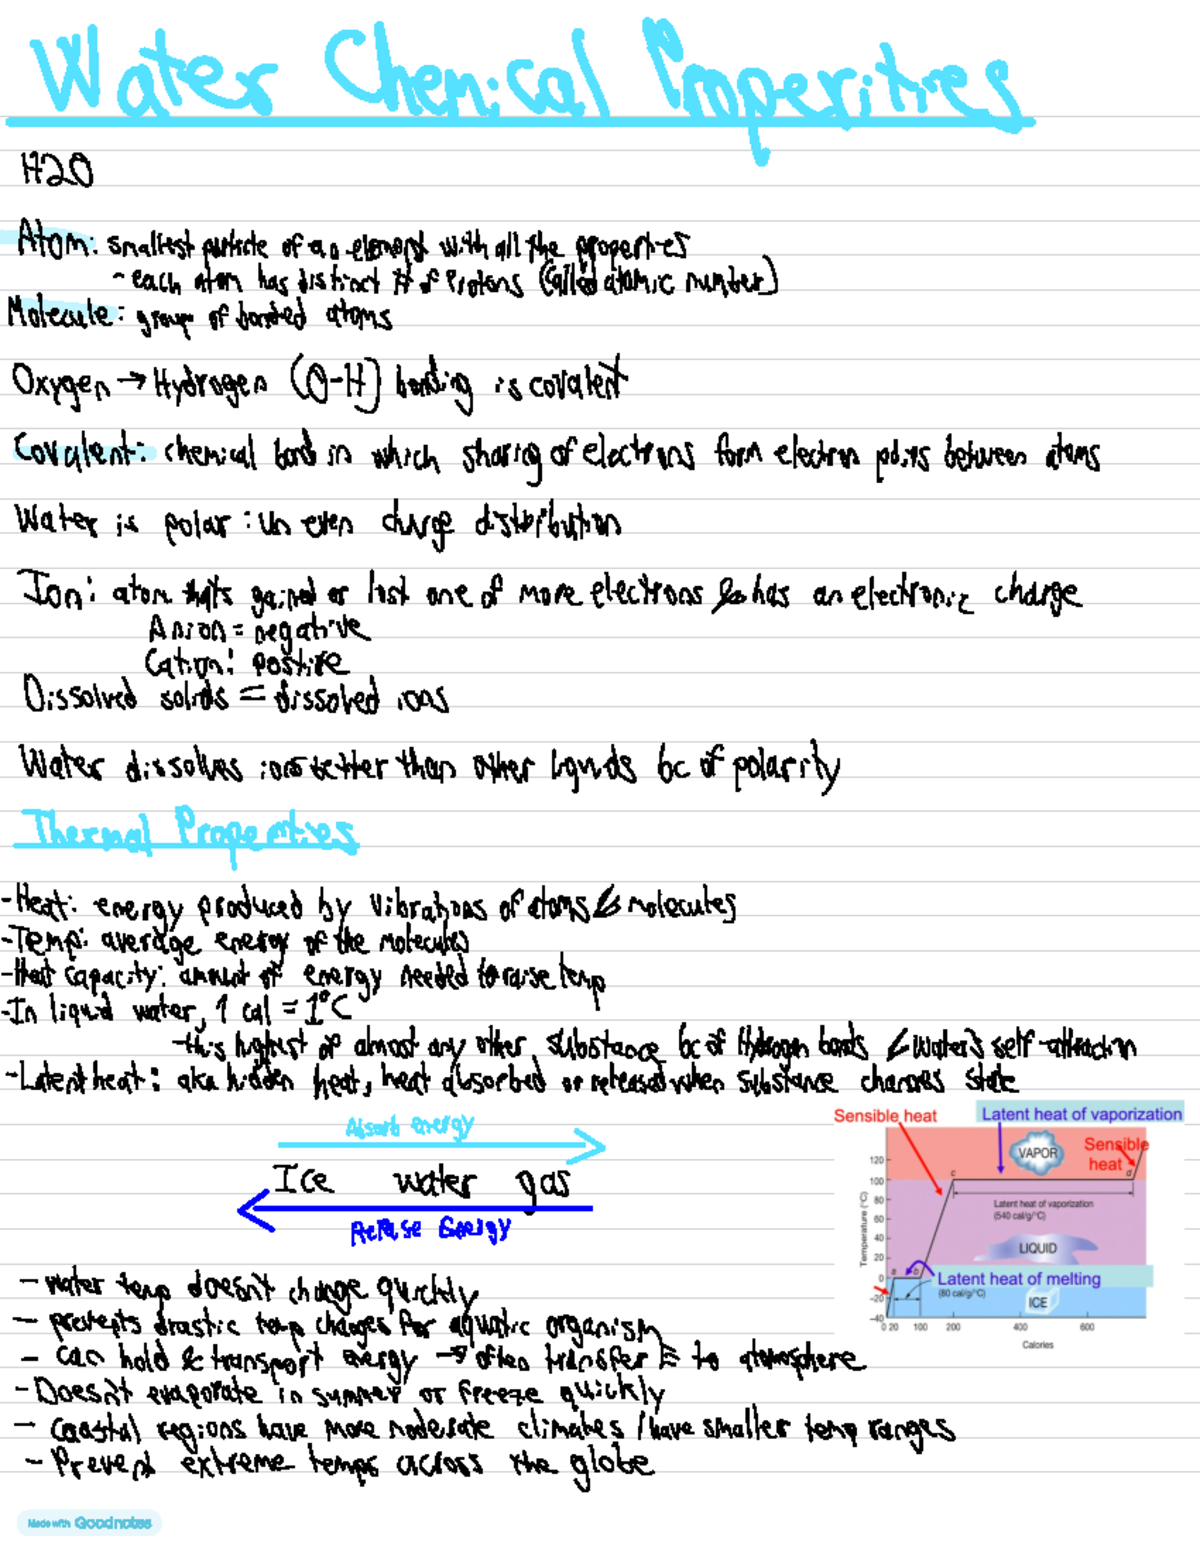 Water Chemical Properitires
H2O
Atom: smallest particle of an element with all the properties
- each atom has distinct # of Protons (called atomic number)
Molecule: group of bonded atoms
Oxygen → Hydrogen (O-H) bonding is covalent
Covalent: chemical bond in which sharing of electrons form electron pairs between atoms
Water is polar: un even charge distribution
Ion: atom thats gained or lost one of more electrons & has an electronic charge
Anion = negative
Cation: postive
Dissolved solids = dissolved ions
Water dissolves ions better than other liquids bc of polarity
Thermal Properties
- Heat: energy produced by vibrations of atoms & molecules
- Temp: average energy of the molecules
- Heat capacity: amount of energy needed to raise temp
- In liquid water, 1 cal = 1°C
- this highest of almost any other substance bc of Hydrogen bonds & water's self-attraction
- Latent heat: aka hidden heat, heat absorbed or released when substance changes state
Absorb energy
Ice water gas
Release Energy
Sensible heat
Latent heat of vaporization
VAPOR
Sensible
heat
120
100
80
60
40
20
0
-20
-40
Temperature (°C)
a
b
c
d
Latent heat of vaporization
(540 cal/g/°C)
LIQUID
Latent heat of melting
(80 cal/g/°C)
ICE
0 20 100 200 400 600
Calories
- water temp doesn't change quickly
- prevents drastic temp changes for aquatic organism
- can hold & transport energy → often transfer E to atomosphere
- Doesn't evaporate in summer or freeze quickly
- Coastal regions have more moderate climates / have smaller temp ranges
- Prevent extreme temps across the globe
Made with Goodnotes